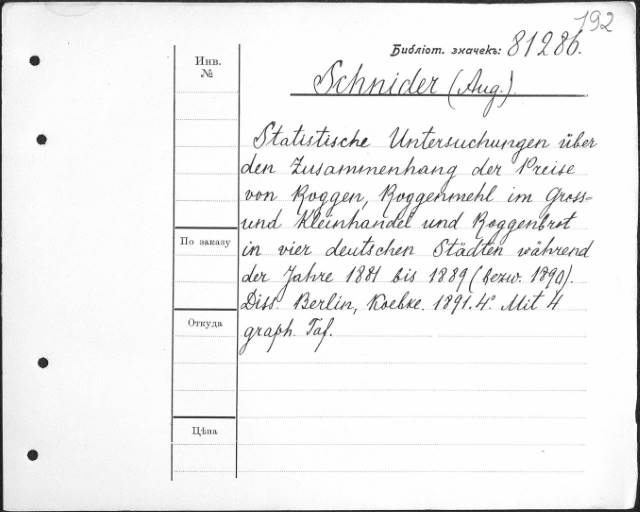 192
Библіот. значекъ: 81286.
Инв.
№
Schnider (Aug.)
Statistische Untersuchungen über
den Zusammenhang der Preise
von Roggen, Roggenmehl im Gross-
und Kleinhandel und Roggenbrot
По заказу
in vier deutschen Städten während
der Jahre 1881 bis 1889 (bezw. 1890).
Diss. Berlin, Koebke. 1891. 4° Mit 4
Откуда
graph. Taf.
Цѣна